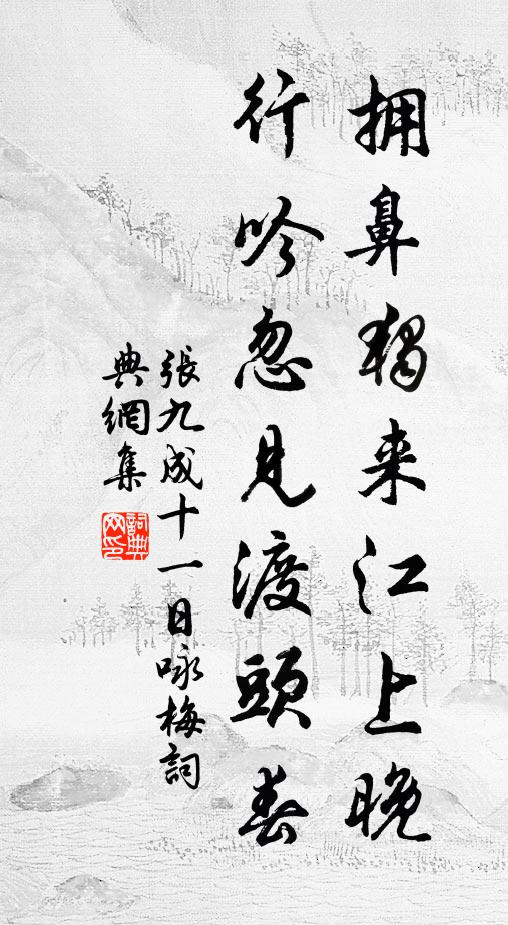 拥鼻独来江上晚
行吟忽见渡頭春
張九成十一日咏梅詞
典網集
詞典
网印